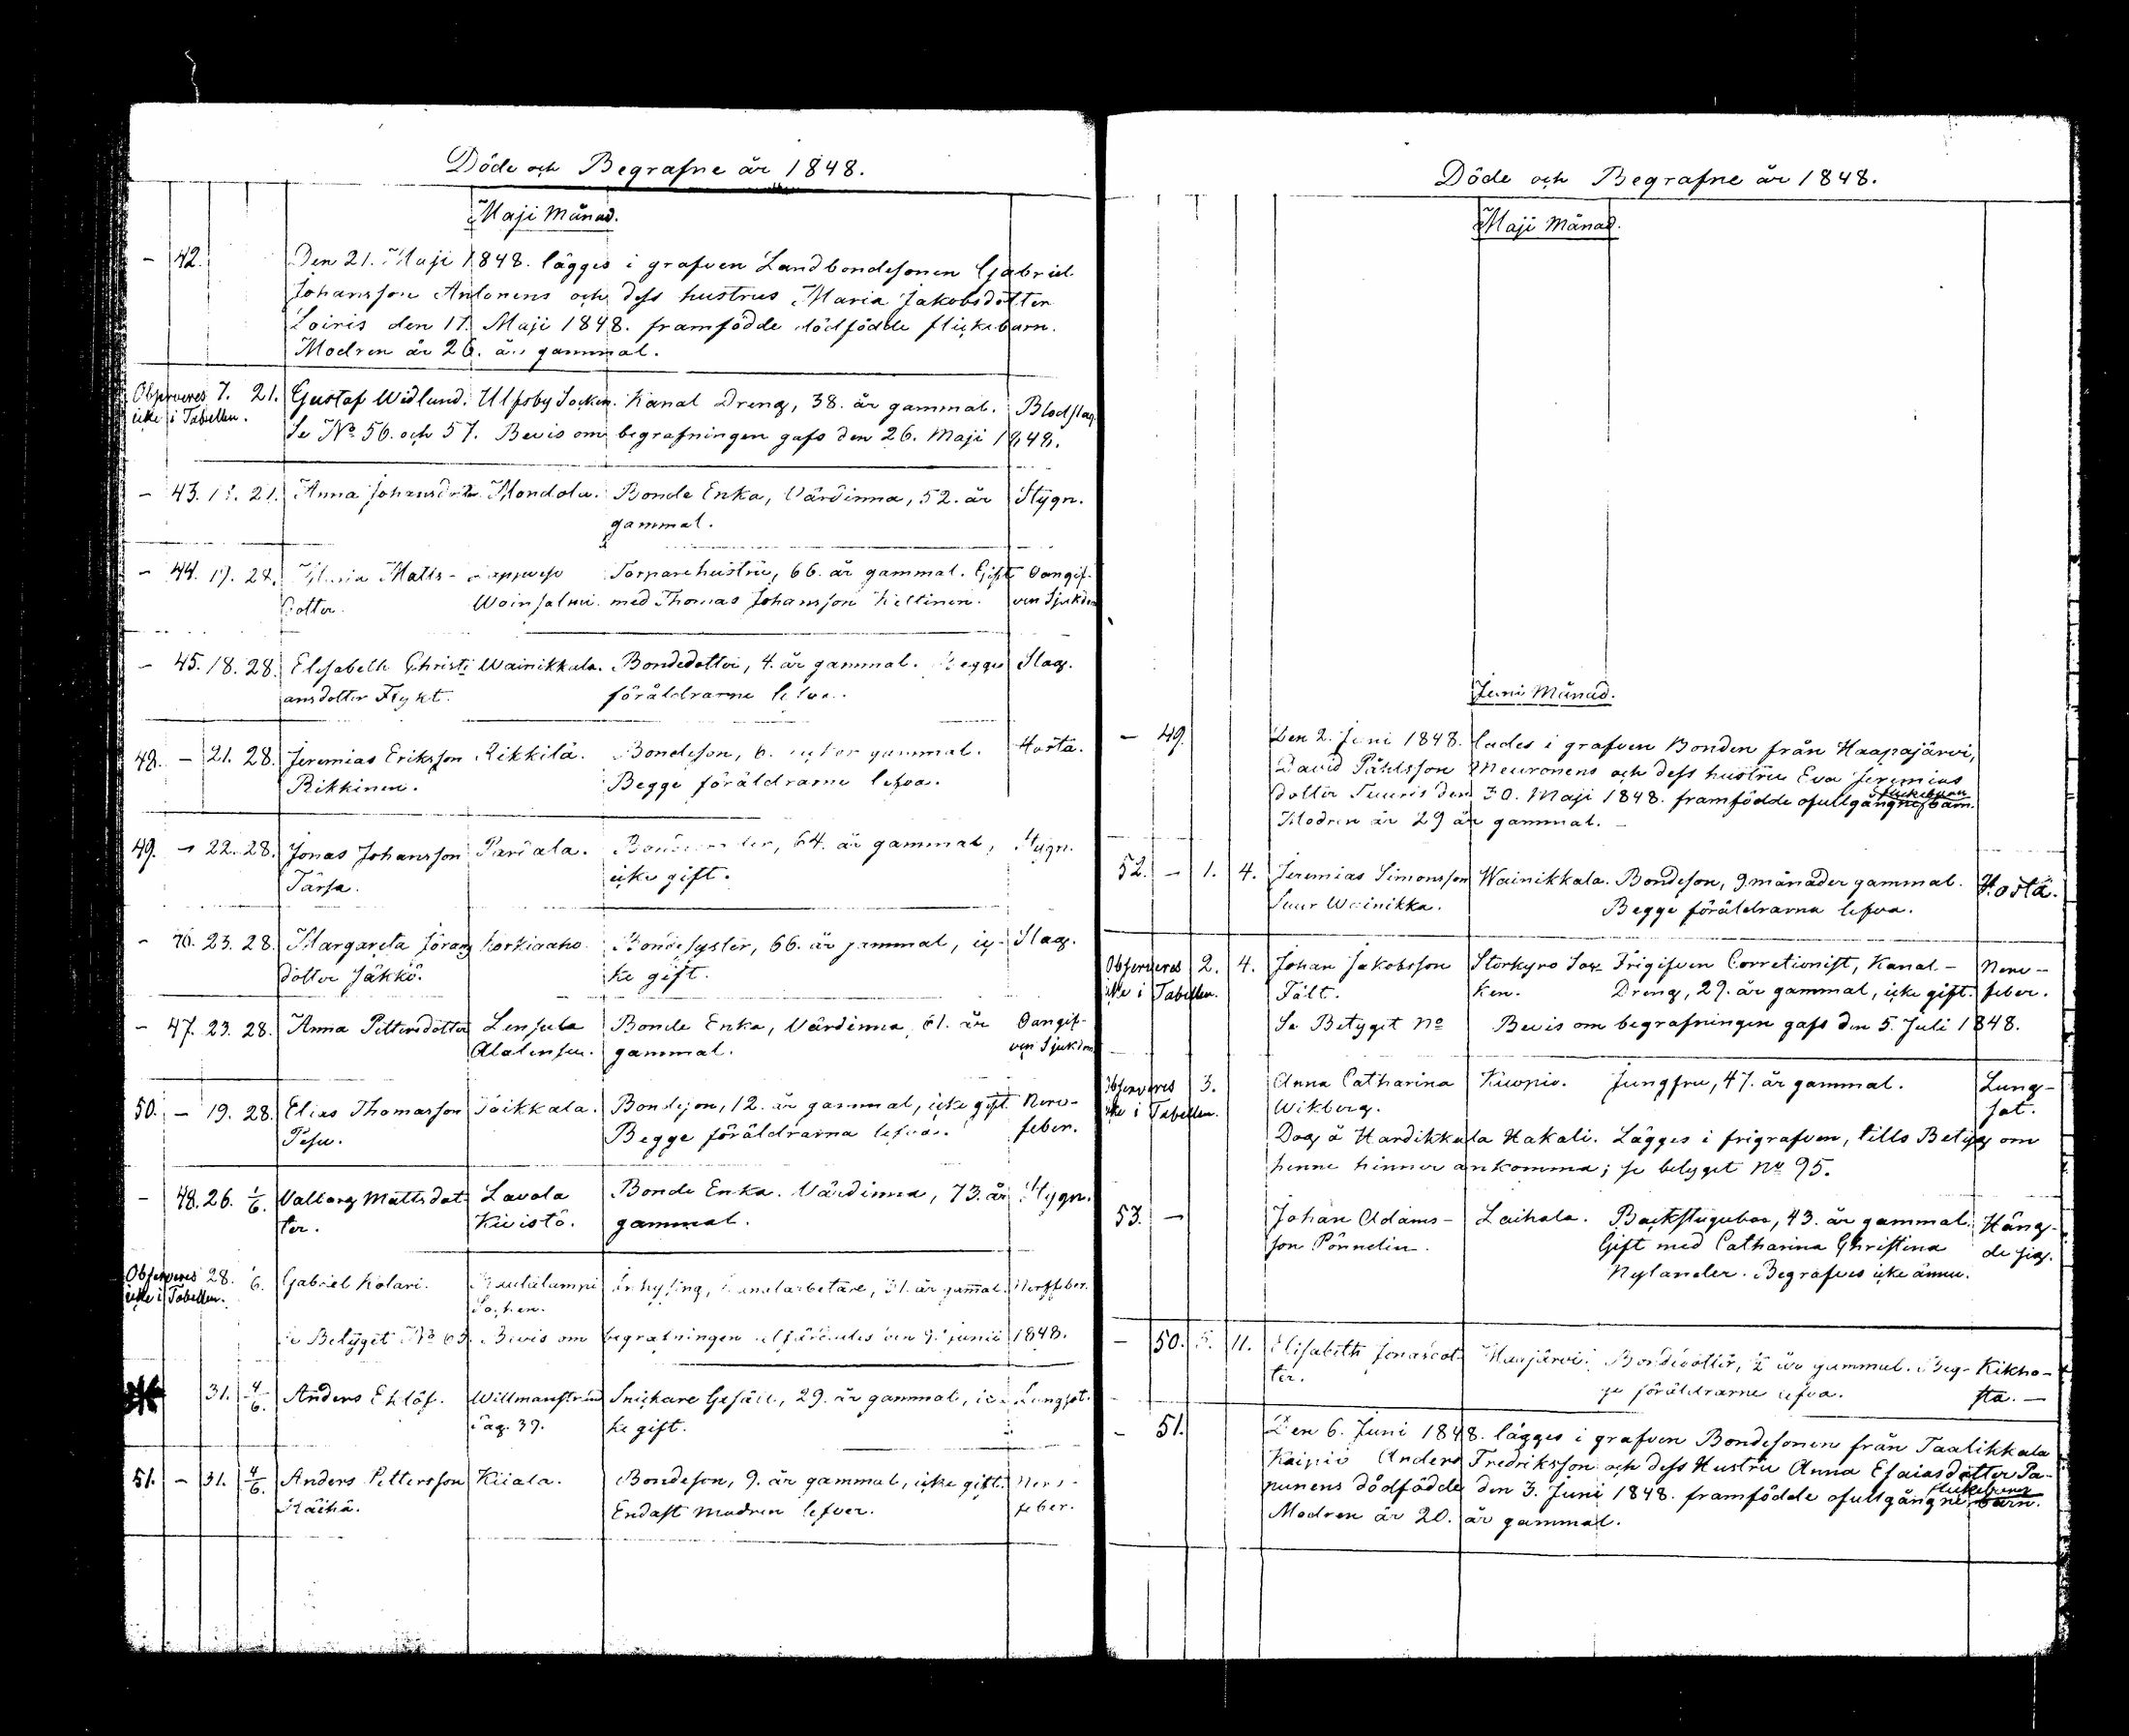 Döde och Begrafne år 1848.
Maji Månad.
– 42. Den 21. Maji 1848. lägges i grafven Landbondesonen Gabriel
Johansson Antonens och dess hustrus Maria Jakobsdotter
Loiris den 17. Maji 1848. framfödde dödfödde flickebarn.
Modren är 26. år gammal.
Observeres 7. 21. Gustaf Widlund. Ulfsby Socken. Kanal Dreng, 38. år gammal. Blodslag.
icke i Tabellen.
Se No 56. och 57. Bevis om begrafningen gafs den 26. Maji 1848.
– 43. 21. Anna Johansdotter Mondola. Bonde Enka, Värdinna, 52. år Stygn.
gammal.
– 44. 17. 28. Maria Matts- Torparehustru, 66. år gammal. Gift Oangif-
dotter. Woinsalmi. med Thomas Johansson Keltinen. ven Sjukdom
– 45. 18. 28. Elisabeth Christi Wainikkala. Bondedotter, 4. år gammal. Begge Slag.
ansdotter Flykt. föräldrarne lefva.
48. – 21. 28. Jeremias Eriksson Rikkilä. Bondeson, 6. veckor gammal. Hosta.
Rikkinen. Begge föräldrarne lefva.
49. – 22. 28. Jonas Johansson Pariala. 64. år gammal, Stygn.
Tärsa. icke gift.
– 46. 23. 28. Margareta Görans Korkiaaho. Bondesyster, 66. år gammal, ic- Slag.
dotter Jäkkö. ke gift.
– 47. 23. 28. Anna Pettersdotter Lensula Bonde Enka, Värdinna, 61. år Oangif-
Alalensu. gammal. ven Sjukdom
50. – 19. 28. Elias Thomasson Toikkala. Bondeson, 12. år gammal, icke gift. Nerv-
Pesu. Begge föräldrarna lefva. feber.
– 48. 26. 1/6. Valborg Mattsdot- Lavola Bonde Enka. Värdinna, 73. år Stygn.
ter. Kivistö. gammal.
Observeres 28. 1/6. Gabriel Kolari. Rautalampi Inhysing, Kanalarbetare, 31. år gammal. Nervfeber.
icke i Tabellen. Socken.
Se Betyget No 63. Bevis om begrafningen utfärdades den 9. Junii 1848.
31. 4/6. Anders Ehlöf. Willmanstrand Snickare Gesäll, 29. år gammal, ic- Lungsot.
Pag. 39. ke gift.
51. – 31. 4/6. Anders Pettersson Kiiala. Bondeson, 9. år gammal, icke gift. Nerv-
Räihä. Endast modren lefver. feber.
Döde och Begrafne år 1848.
Maji Månad.
Juni Månad.
– 49. Den 2. Juni 1848. lades i grafven Bonden från Haapajärvi,
David Påhlsson Meuronens och dess hustru Eva Jeremias
flickebarn
dotter Tuuris den 30. Maji 1848. framfödde ofullgångne barn.
Modren är 29 år gammal. –
52. – 1. 4. Jeremias Simonsson Wainikkala. Bondeson, 9 månader gammal. Hosta.
Suur Wainikka. Begge föräldrarna lefva.
Observeres 2. 4. Johan Jakobsson Storkyro Soc- Frigifven Corretionist, Kanal- Nerv-
icke i Tabellen. Fält. ken. Dreng, 29. år gammal, icke gift. feber.
Se Betyget No Bevis om begrafningen gafs den 5. Juli 1848.
Observeres 3. Anna Catharina Kuopio. Jungfru, 47. år gammal. Lung-
icke i Tabellen. Wikberg. sot.
Dog å Hardikkala Hakali. Lägges i frigrafven, tills Betyg om
henne hinner ankomma; se betyget No 95.
53. – Johan Adams- Laihala. Backstugubo, 43. år gammal. Häng-
son Pönnelin. Gift med Catharina Christina de sig.
Nylander. Begrafves icke ännu.
– 50. 5. 11. Elisabeth Jonasdot- Hanjärvi. Bondedotter, 1/2 år gammal. Beg- Kikho-
ter. ge föräldrarne lefva. sta. –
– 51. Den 6. Juni 1848. lägges i grafven Bondesonen från Taalikkala
Kaipio Anders Fredriksson och dess Hustru Anna Esaiasdotter Pa-
flickebarn
punens dödfödde den 3. Juni 1848. framfödde ofullgångne barn.
Modren är 20. år gammal.